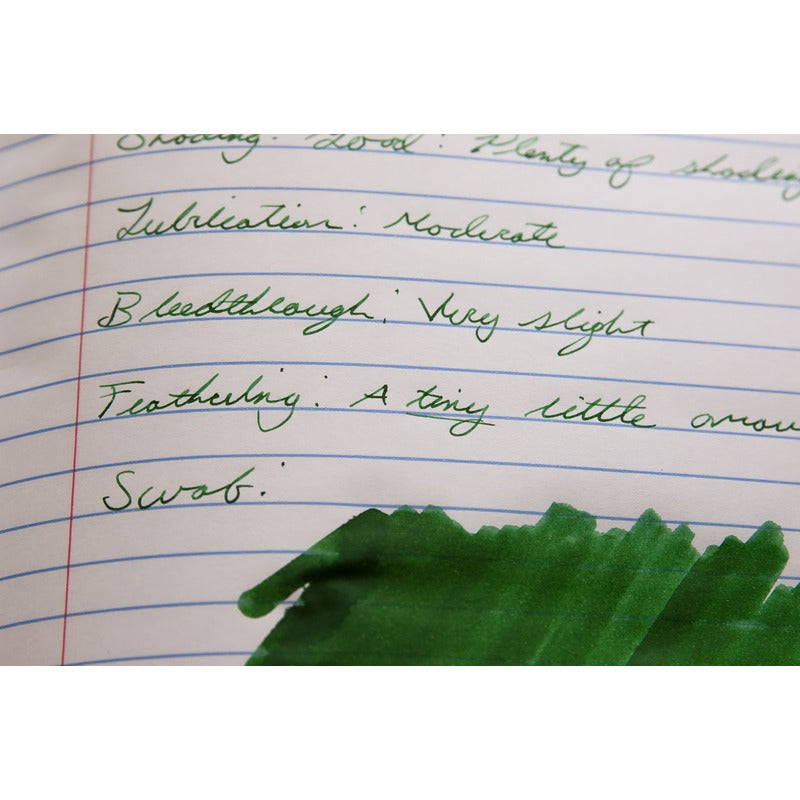 Shading: Good! Plenty of shading
Lubrication: Moderate
Bleedthrough: Very slight
Feathering: A tiny little
Swab: